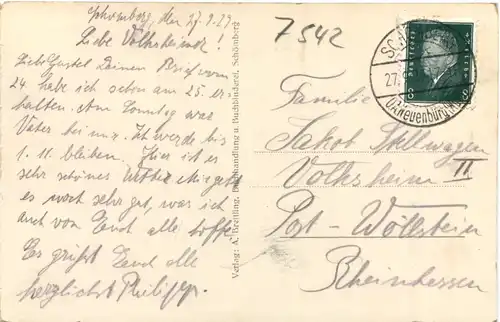 Schömberg, den 27.9.29
Liebe Volksheimer!
Liebe Gustel Deinen Brief vom
24. habe ich schon am 25. er-
halten. Am Sonntag war
Vater bei mir. Ich werde bis
1.11. bleiben. Hier ist es
sehr schönes Wetter. Mir geht
es noch sehr gut, was ich
auch von Euch alle hoffe
Es grüßt Euch alle
herzlichst Philipp.
Verlag: A. Breitling, Buchhandlung u. Buchbinderei, Schömberg
7542
Familie
Jakob Stellwagen II
Volxheim
Post-Wöllstein
Rheinhessen
27.
O.A. Neuenbürg
8 8